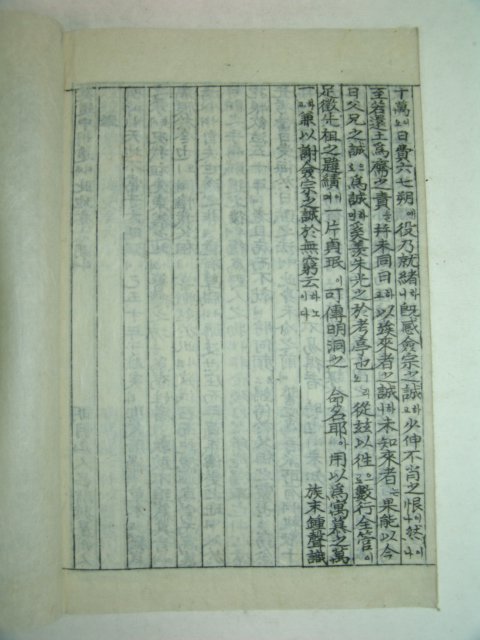 十萬이日費六七朔에役乃就緖하니旣感僉宗之誠하고少伸不肖之恨이나然이나
至若還土爲齋之責을幷未同日하고以俟來者之誠하니未知來者는果能以今
日父兄之誠으로爲誠인奚羨朱光之於考亭也리오從玆以往으로數行全管이
足徵先祖之題績이며一片貞珉이可傳明洞之命名耶아用以爲寓慕之萬
一하고兼以謝僉宗之誠於無窮云하노이다
族末鍾聲識